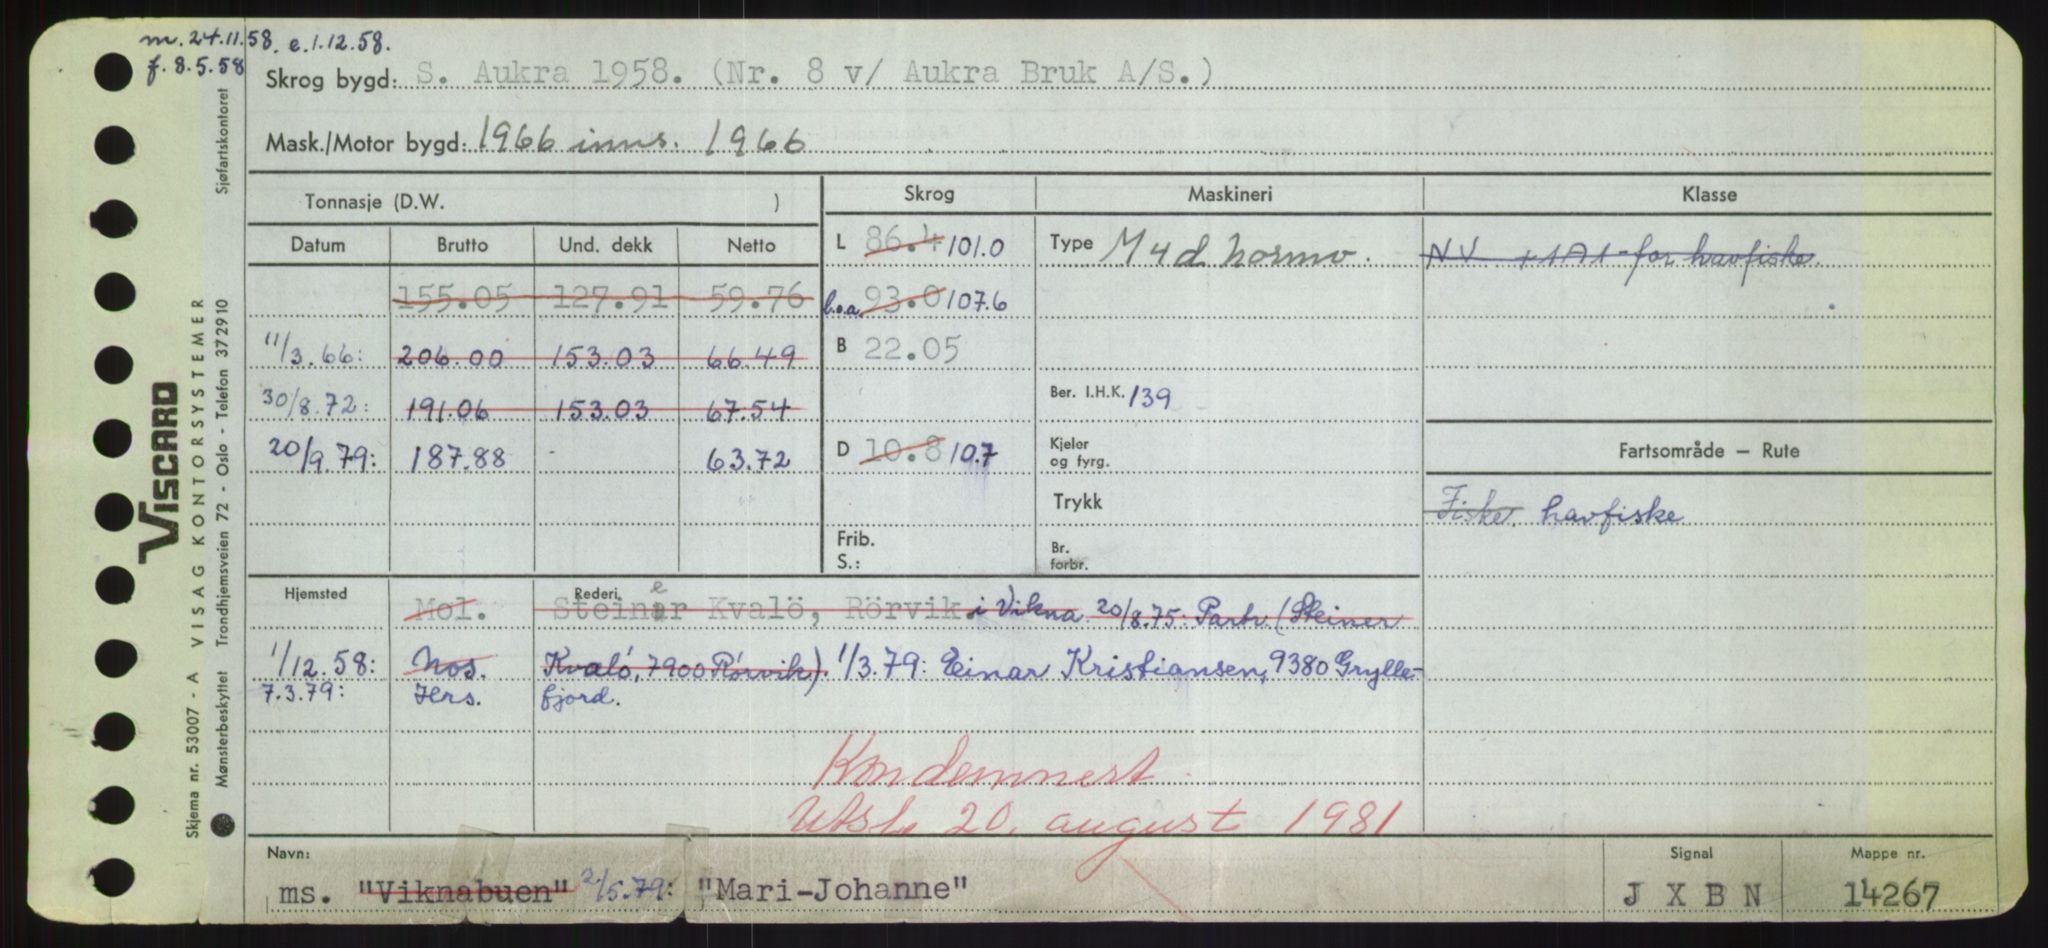 m. 24.11.58. e.1.12.58.
f. 8.5.58
Skrog bygd: S. Aukra 1958. (Nr. 8 v/ Aukra Bruk A/S.)
Mask./Motor bygd: 1966 inns. 1966
Tonnasje (D.W. ) Skrog Maskineri Klasse
Datum Brutto Und. dekk Netto L 86.4 101.0 Type M4d hormo. NV +1A1-for havfiske.
155.05 127.91 59.76 b.o.a. 93.0 107.6
11/3.66: 206.00 153.03 66.49 B 22.05
30/8.72: 191.06 153.03 67.54 Ber. I.H.K. 139
20/9.79: 187.88 - 63.72 D 10.8 10.7 Kjeler og fyrg. Fartsområde — Rute
Trykk Fiske. havfiske
Frib.
S.: Br. forbr.
Hjemsted Mol. Rederi Steiner Kvalö, Rörvik. i Vikna 20/8.75: Partr. (Steiner
1/12.58: Nos. Kvaló, 7900 Rórvik). 1/3.79: Einar Kristiansen, 9380 Grylle-
7.3.79: Hrs. fjord.
Kondemnert
Utsl. 20. august 1981
Navn:
ms. "Viknabuen" 2/5.79: "Mari-Johanne" Signal J X B N Mappe nr. 14267
VISCARD
Skjema nr. 53007 - A VISAG KONTORSYSTEMER
Mønsterbeskyttet Trondhjemsveien 72 - Oslo - Telefon 372910 Sjøfartskontoret